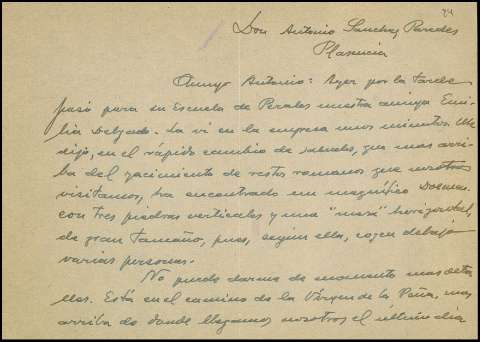 24
Don Antonio Sanchez Paredes
Plasencia
Amigo Antonio: Ayer por la tarde
pasó para su Escuela de Perales nuestra amiga Emi-
lia Delgado. La vi en la empresa unos minutos. Me
dijo, en el rápido cambio de saludos, que mas arri-
ba del yacimiento de restos romanos que nosotros
visitamos, ha encontrado un magnífico Dolmen.
con tres piedras verticales y una "mesa" horizontal,
de gran tamaño, pues, según ella, cogen debajo
varias personas.
No puedo darme de momento mas deta-
lles. Está en el camino de la Vírgen de la Peña, mas
arriba de donde llegamos nosotros el último dia